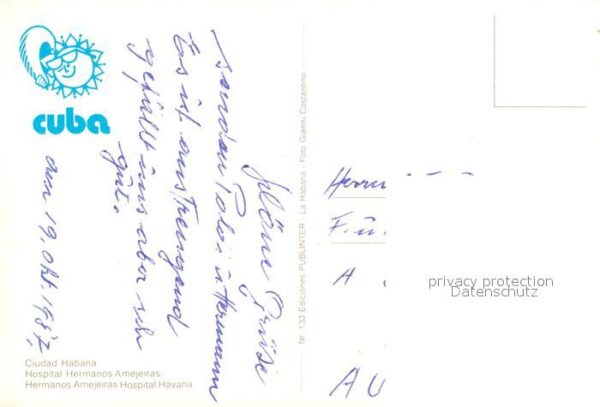 cuba
den 19. Okt. 1987
Schöne Grüße
senden
Es ist anstrengend
gefällt uns aber sehr
gut.
Ciudad Habana.
Hospital Hermanos Amejeiras.
Hermanos Amejeiras Hospital. Havana.
Nr. 133 Ediciones PUBLINTER - La Habana - Foto Gianni Costantino
Herrn
F.
A
A U
privacy protection
Datenschutz